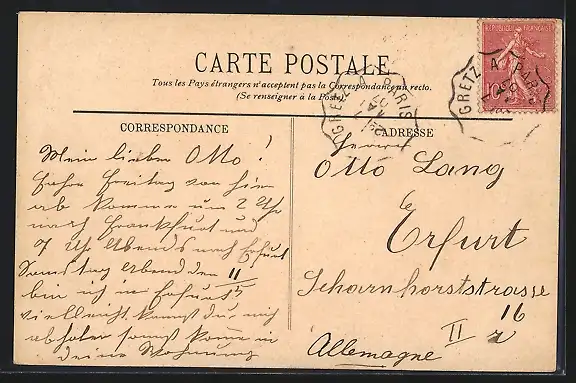 CARTE POSTALE
Tous les Pays étrangers n'acceptent pas la Correspondance au recto.
(Se renseigner à la Poste)
REPUBLIQUE FRANÇAISE
10
GRETZ A PARIS
GRETZ A PARIS
CORRESPONDANCE
Mein lieber Otto!
fahre Freitag von hier
ab komme um 2 Uhr
nach Frankfurt und
7 Uh Abends nach Erfurt
Samstag Abend den 11
bin ich in Erfurt
vielleicht kannst du mich
abholen sonst komme in
deine Wohnung
ADRESSE
Herrn
Otto Lang
Erfurt
Scharnhorststrasse
16
II r
Allemagne